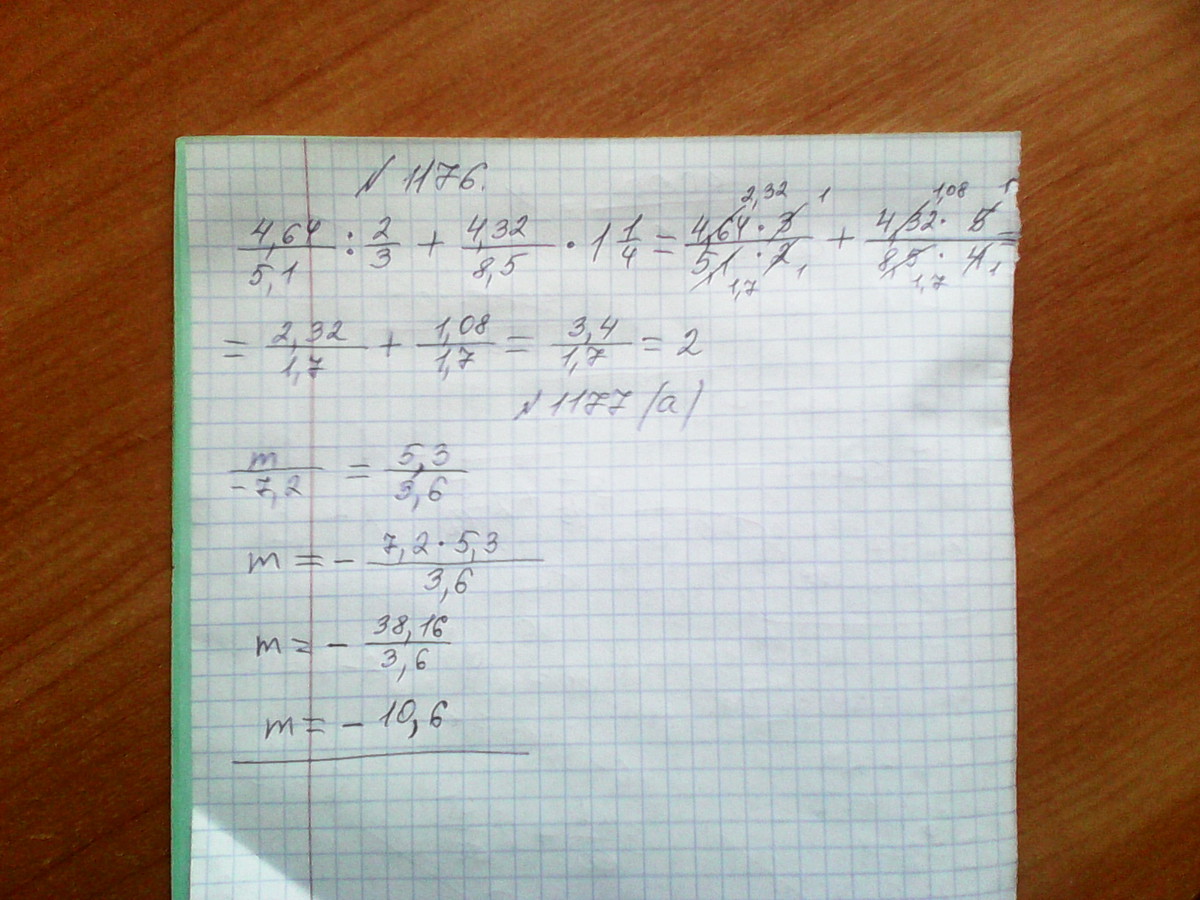 № 1176.
4,64/5,1 : 2/3 + 4,32/8,5 · 1 1/4 = 4,64 · 3/5,1 · 2 + 4,32 · 5/8,5 · 4 =
2,32 1 1,7 1 1,08 1 1,7 1
= 2,32/1,7 + 1,08/1,7 = 3,4/1,7 = 2
№ 1177 (а)
m/-7,2 = 5,3/3,6
m = - 7,2 · 5,3/3,6
m = - 38,16/3,6
m = - 10,6